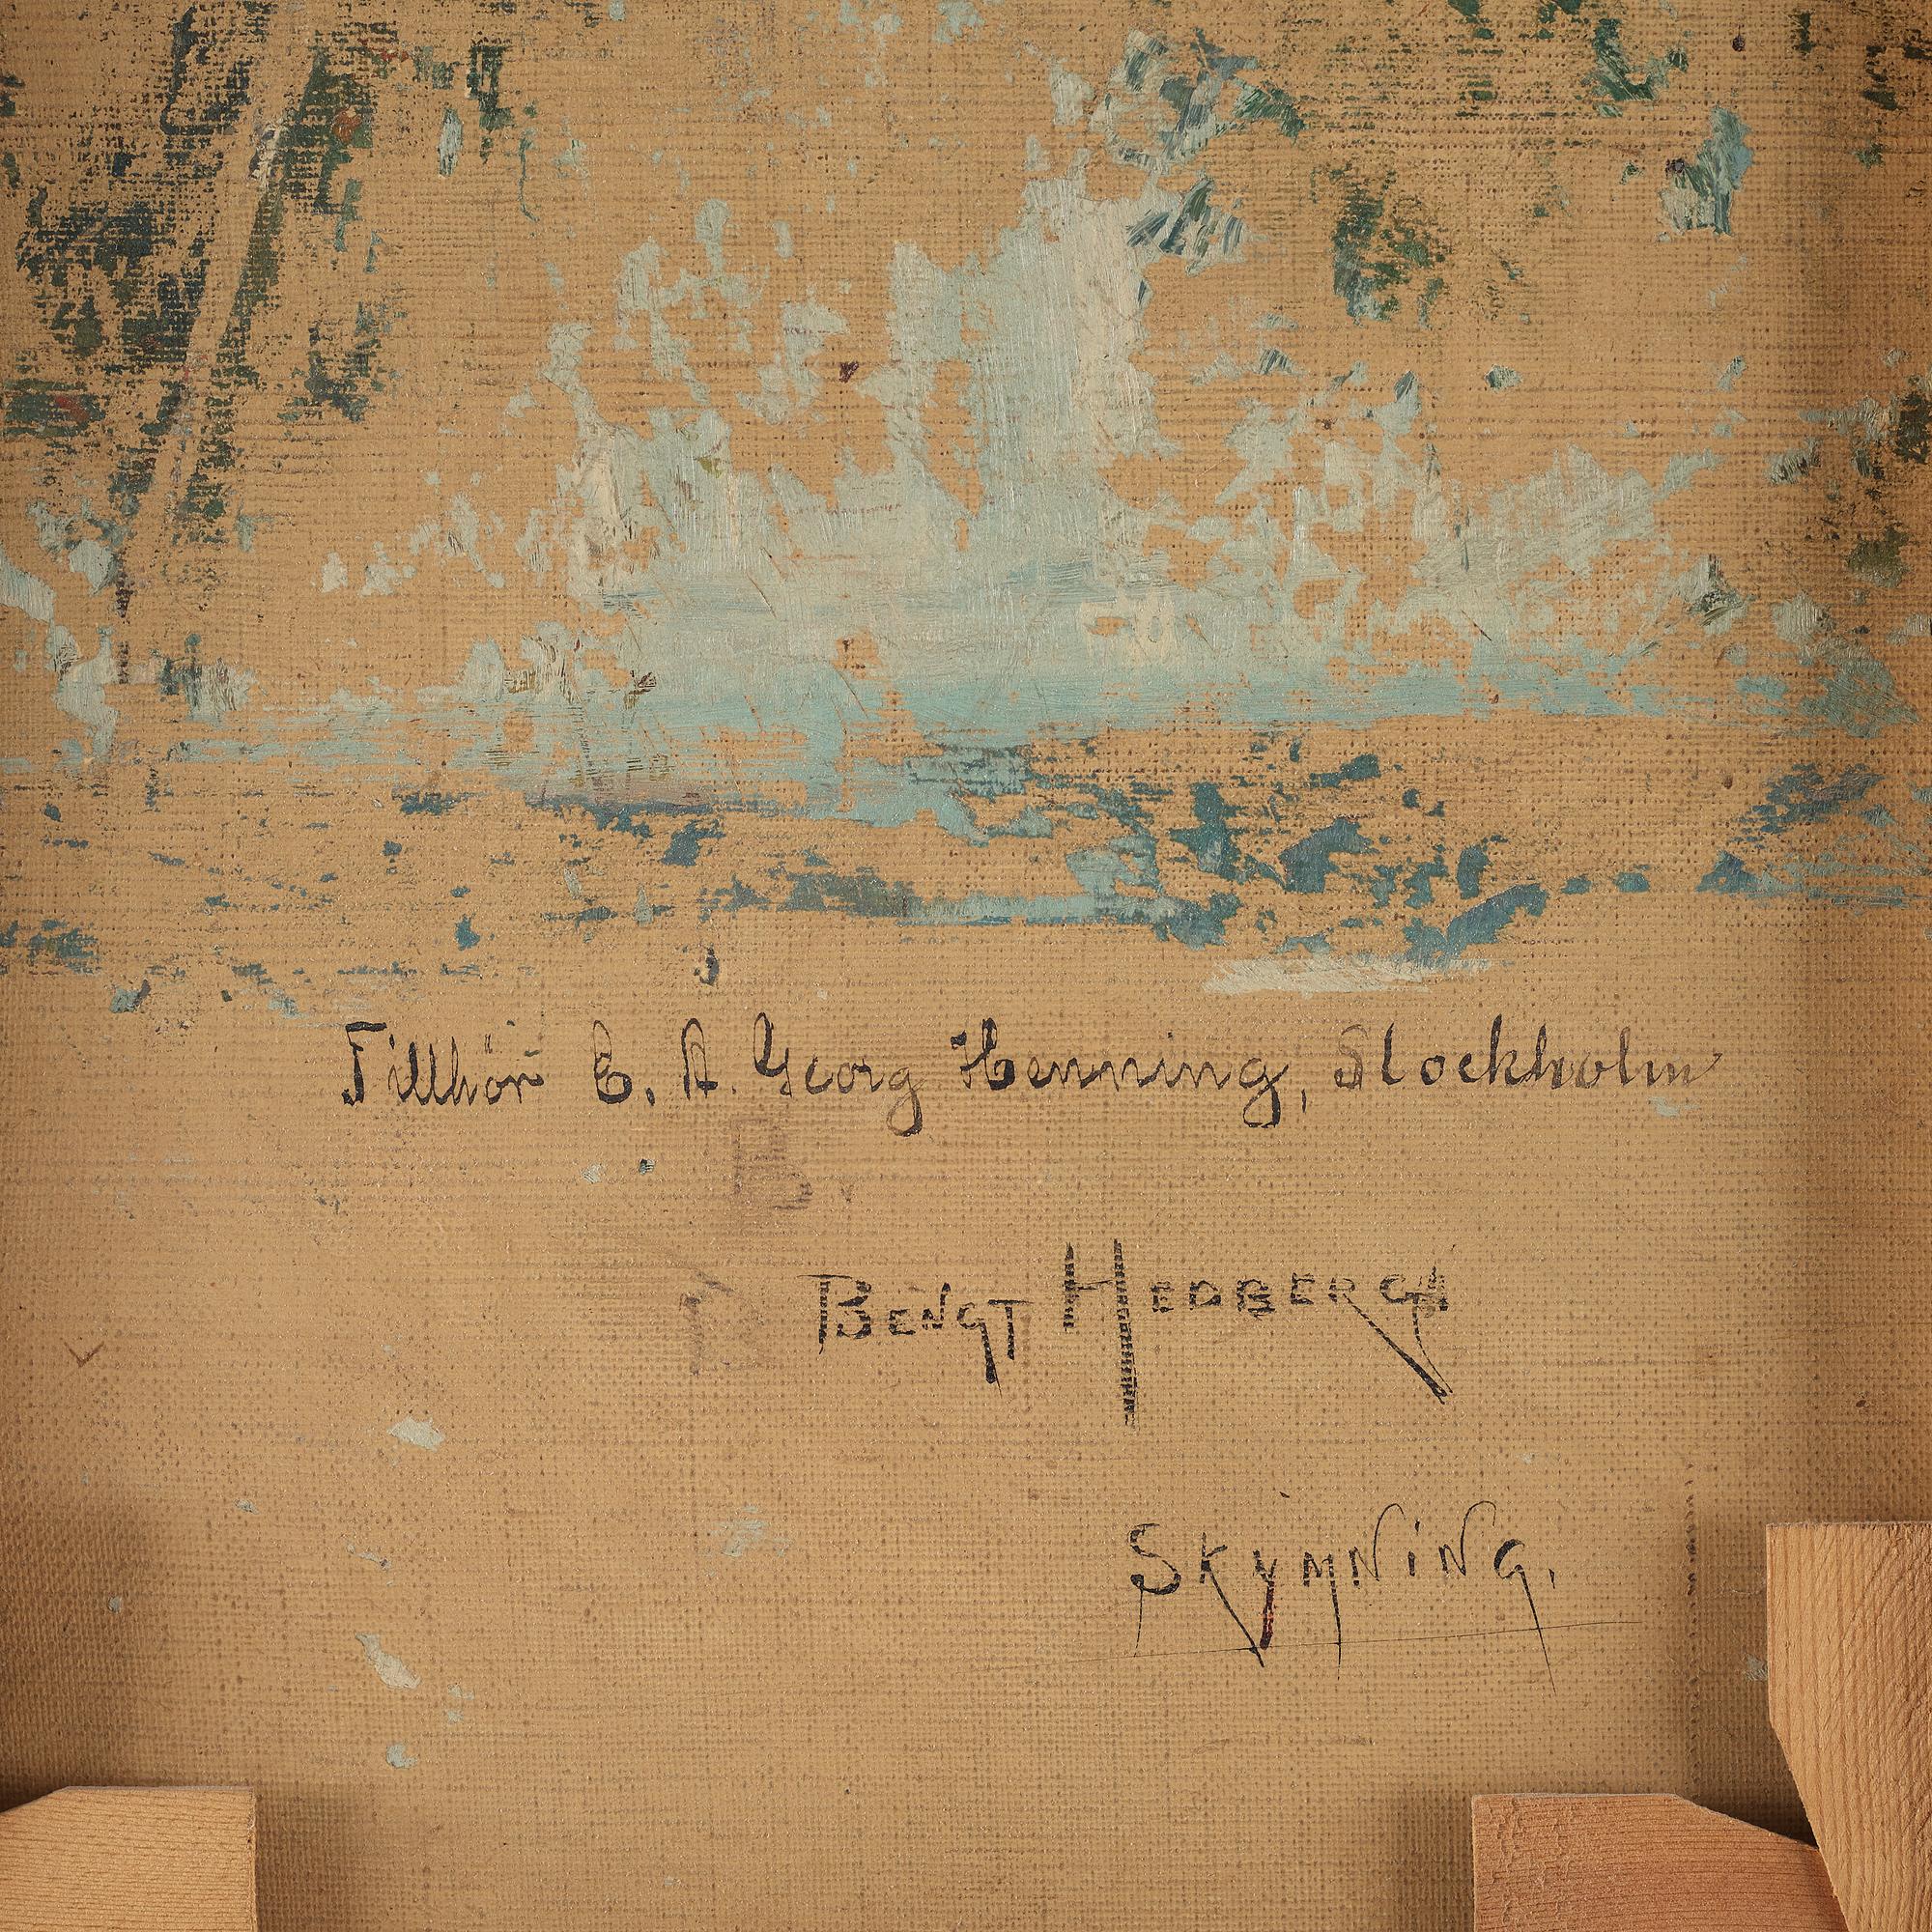 Tillhör E. A. Georg Henning, Stockholm
B.
BENGT HEDBERG
SKYMNING.